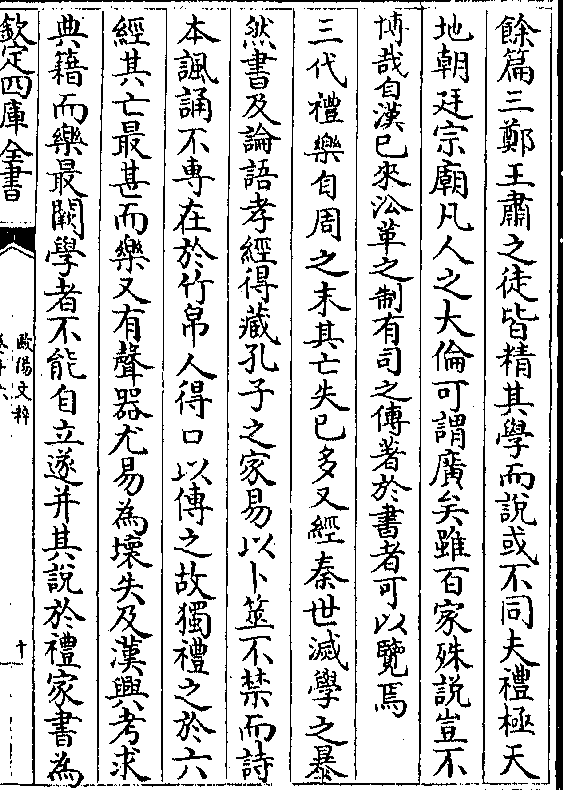 餘篇三鄭王肅之徒皆精其學而說或不同夫禮極天
地朝廷宗廟凡人之大倫可謂廣矣雖百家殊說豈不
博哉自漢已來㳂革之制有司之傳著於書者可以覽焉
三代禮樂自周之末其亡失已多又經秦世滅學之暴
然書及論語孝經得藏孔子之家易以卜筮不禁而詩
本諷誦不專在於竹帛人得口以傳之故獨禮之於六
經其亡最甚而樂又有聲器尤易為壞失及漢興考求
典籍而樂最闕學者不能自立遂并其說於禮家書為
欽定四庫全書
歐陽文粹
十